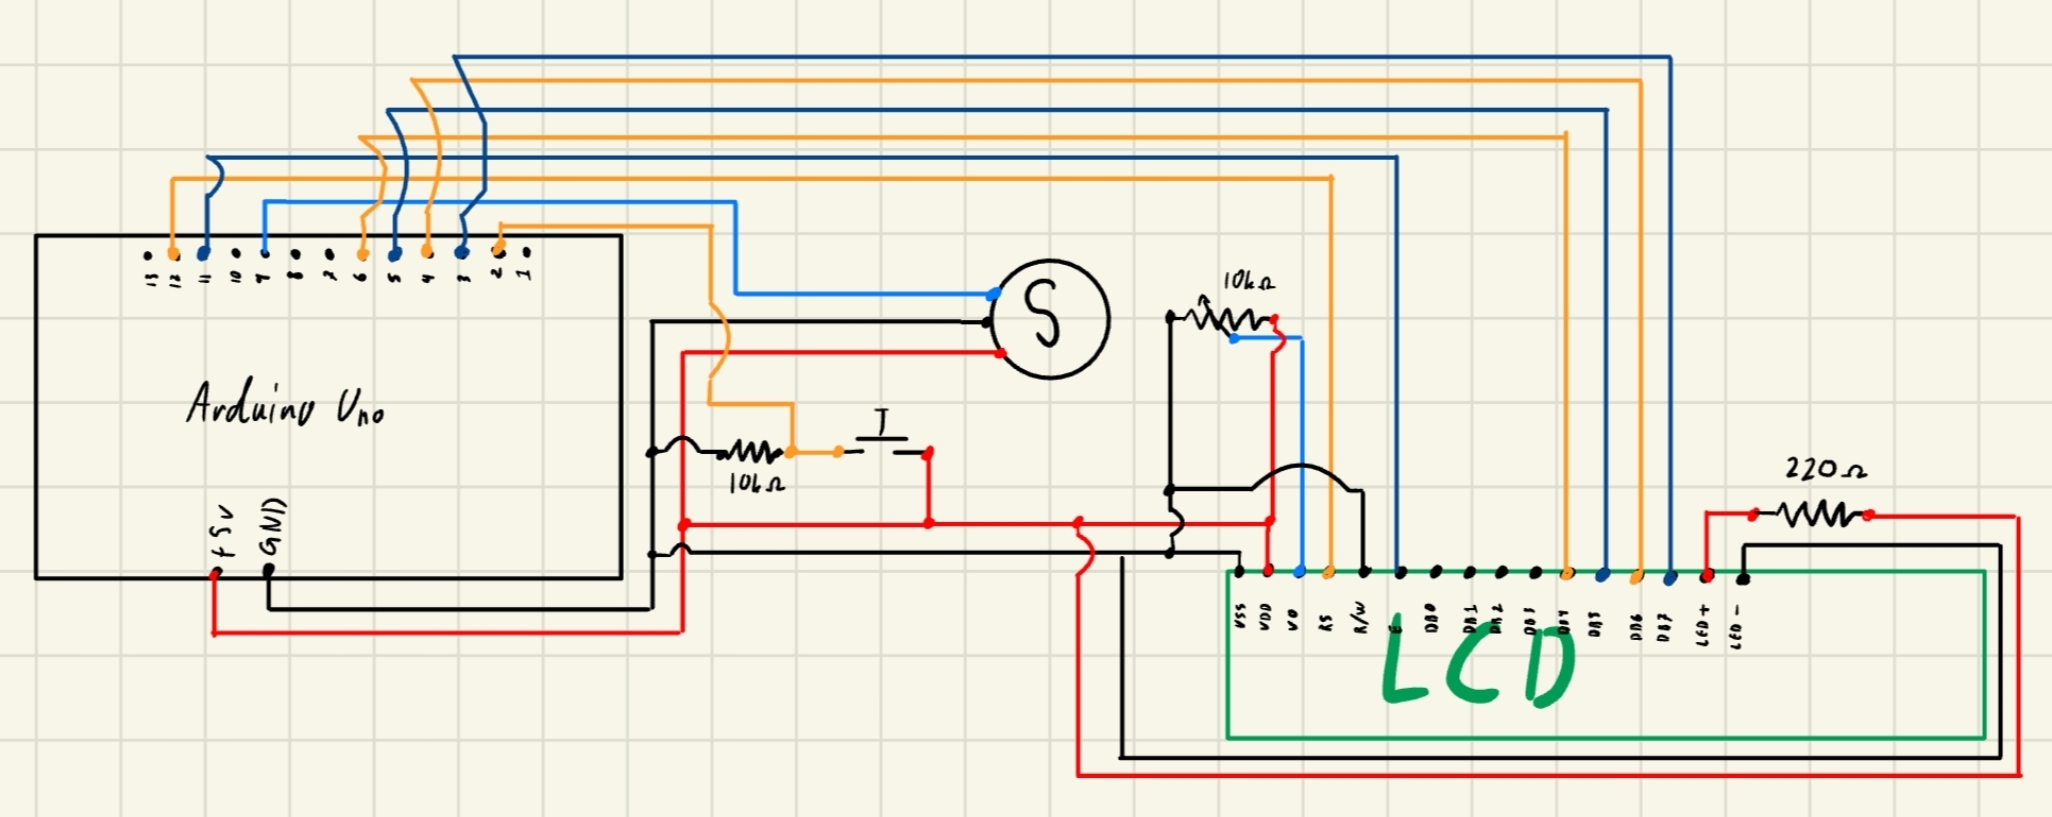 13 12 11 10 9 8 7 6 5 4 3 2 1
Arduino Uno
+5v
GND
S
10kΩ
T
10kΩ
220Ω
VSS VDD VO RS R/W E DB0 DB1 DB2 DB3 DB4 DB5 DB6 DB7 LED+ LED-
LCD